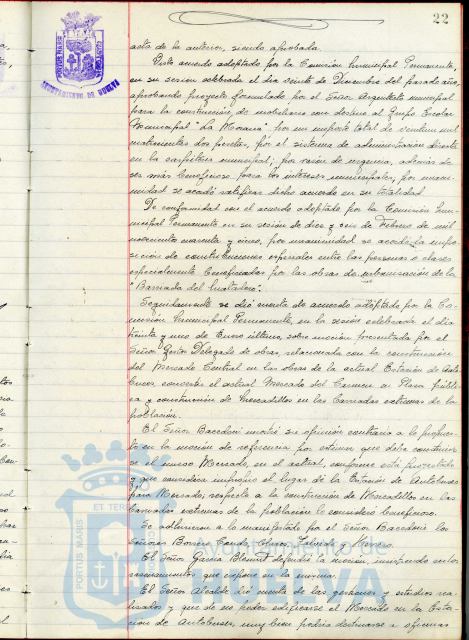 22
PORTUS MARIS
AYUNTAMIENTO DE HUELVA
acta de la anterior, siendo aprobada.
Visto acuerdo adoptado por la Comisión Municipal Permanente,
en su sesión celebrada el día veinte de Diciembre del pasado año,
aprobando proyecto formulado por el Señor Arquitecto municipal
para la construcción de mobiliario con destino al Grupo Escolar
Municipal "La Morana" por un importe total de veintiun mil
cuatrocientas dos pesetas, por el sistema de administración directa
en la carpintería municipal; por razón de urgencia, además de
ser más beneficioso para los intereses municipales, por unani-
midad se acordó ratificar dicho acuerdo en su totalidad.
De conformidad con el acuerdo adoptado por la Comisión Mu-
nicipal Permanente en su sesión de diez y seis de Febrero de mil
novecientos cuarenta y cinco, por unanimidad se acordó la impo-
sición de contribuciones especiales entre las personas o clases
especialmente beneficiadas por las obras de urbanización de la
"Barriada del Matadero".
Seguidamente se dió cuenta de acuerdo adoptado por la Co-
misión Municipal Permanente, en la sesión celebrada el día
treinta y uno de Enero último, sobre moción presentada por el
Señor Gestor Delegado de obras, relacionada con la construcción
del Mercado Central en las obras de la actual Estación de Auto-
buses, convertir el actual Mercado del Carmen en Plaza públi-
ca y construcción de Mercadillos en las barriadas extremas de la
población.
El Señor Bacedoni mostró su opinión contraria a lo propues-
to en la moción de referencia por estimar que debe construir-
se el nuevo Mercado, en el actual, conforme está proyectado
y que considera impropio el lugar de la Estación de Autobuses
para Mercado; respecto a la construcción de Mercadillos en las
barriadas extremas de la población lo consideró beneficioso.
Se adhirieron a lo manifestado por el Señor Bacedoni los
Señores Borrero Conde, Claros, Salcedo y Moreno.
El Señor García defendió la moción, insistiendo en los
razonamientos que expone en la misma.
El Señor Alcalde dió cuenta de las gestiones y estudios rea-
lizados y que de no poder edificarse el Mercado en la Esta-
ción de Autobuses, muy bien podría destinarse a oficinas
ET TERRAE
PORTUS MARIS
Ayuntamiento de
HUELVA